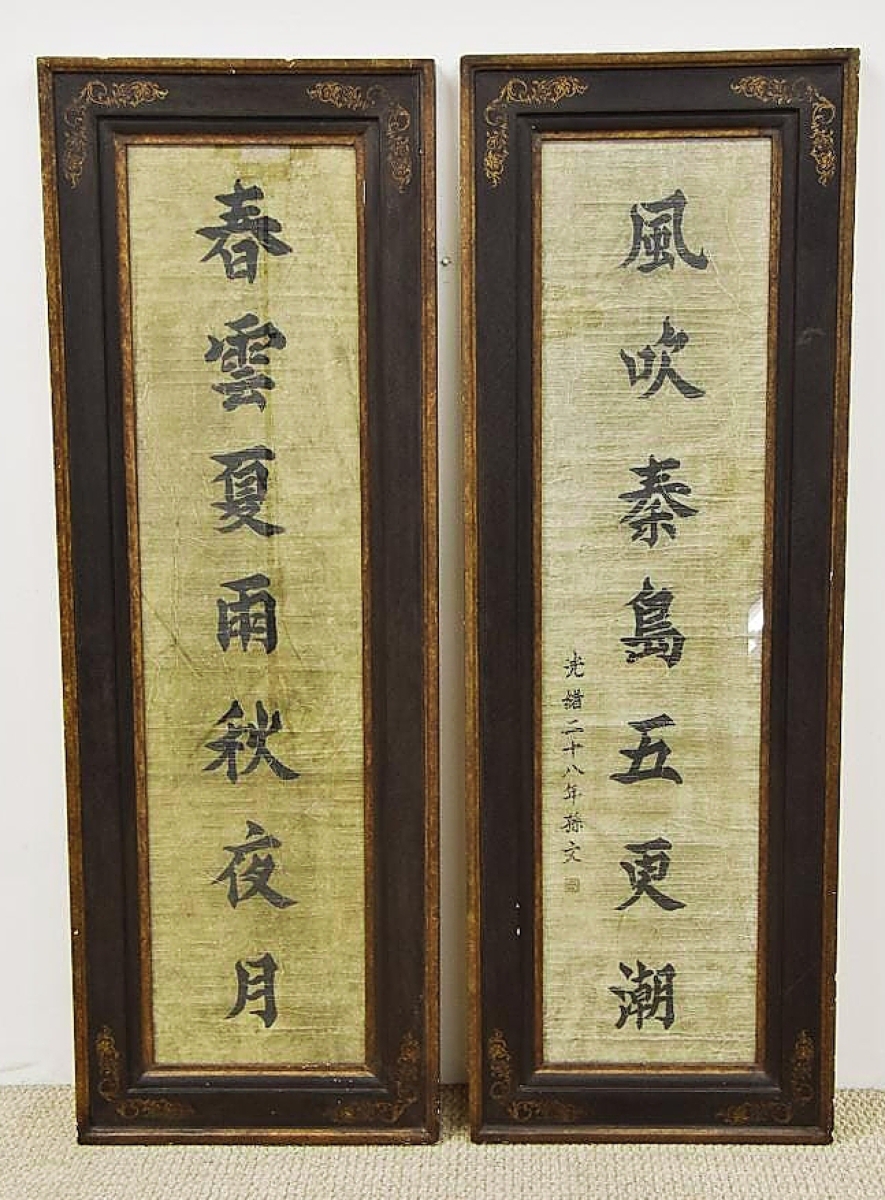 春雲夏雨秋夜月
風吹秦島五更潮
光緒二十八年孫文